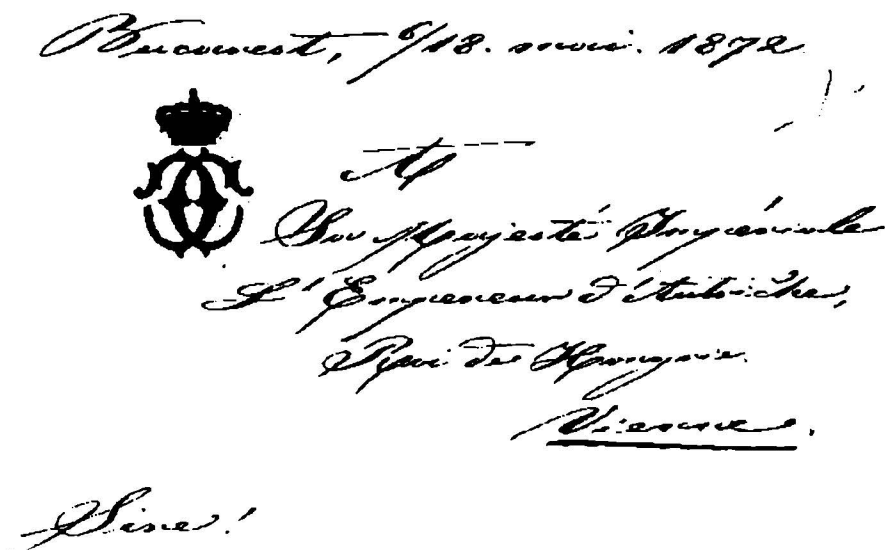 Bucarest, 6/18. mai. 1872
A
Sa Majesté Impériale
L'Empereur d'Autriche,
Roi de Hongrie.
Vienne.
Sire!